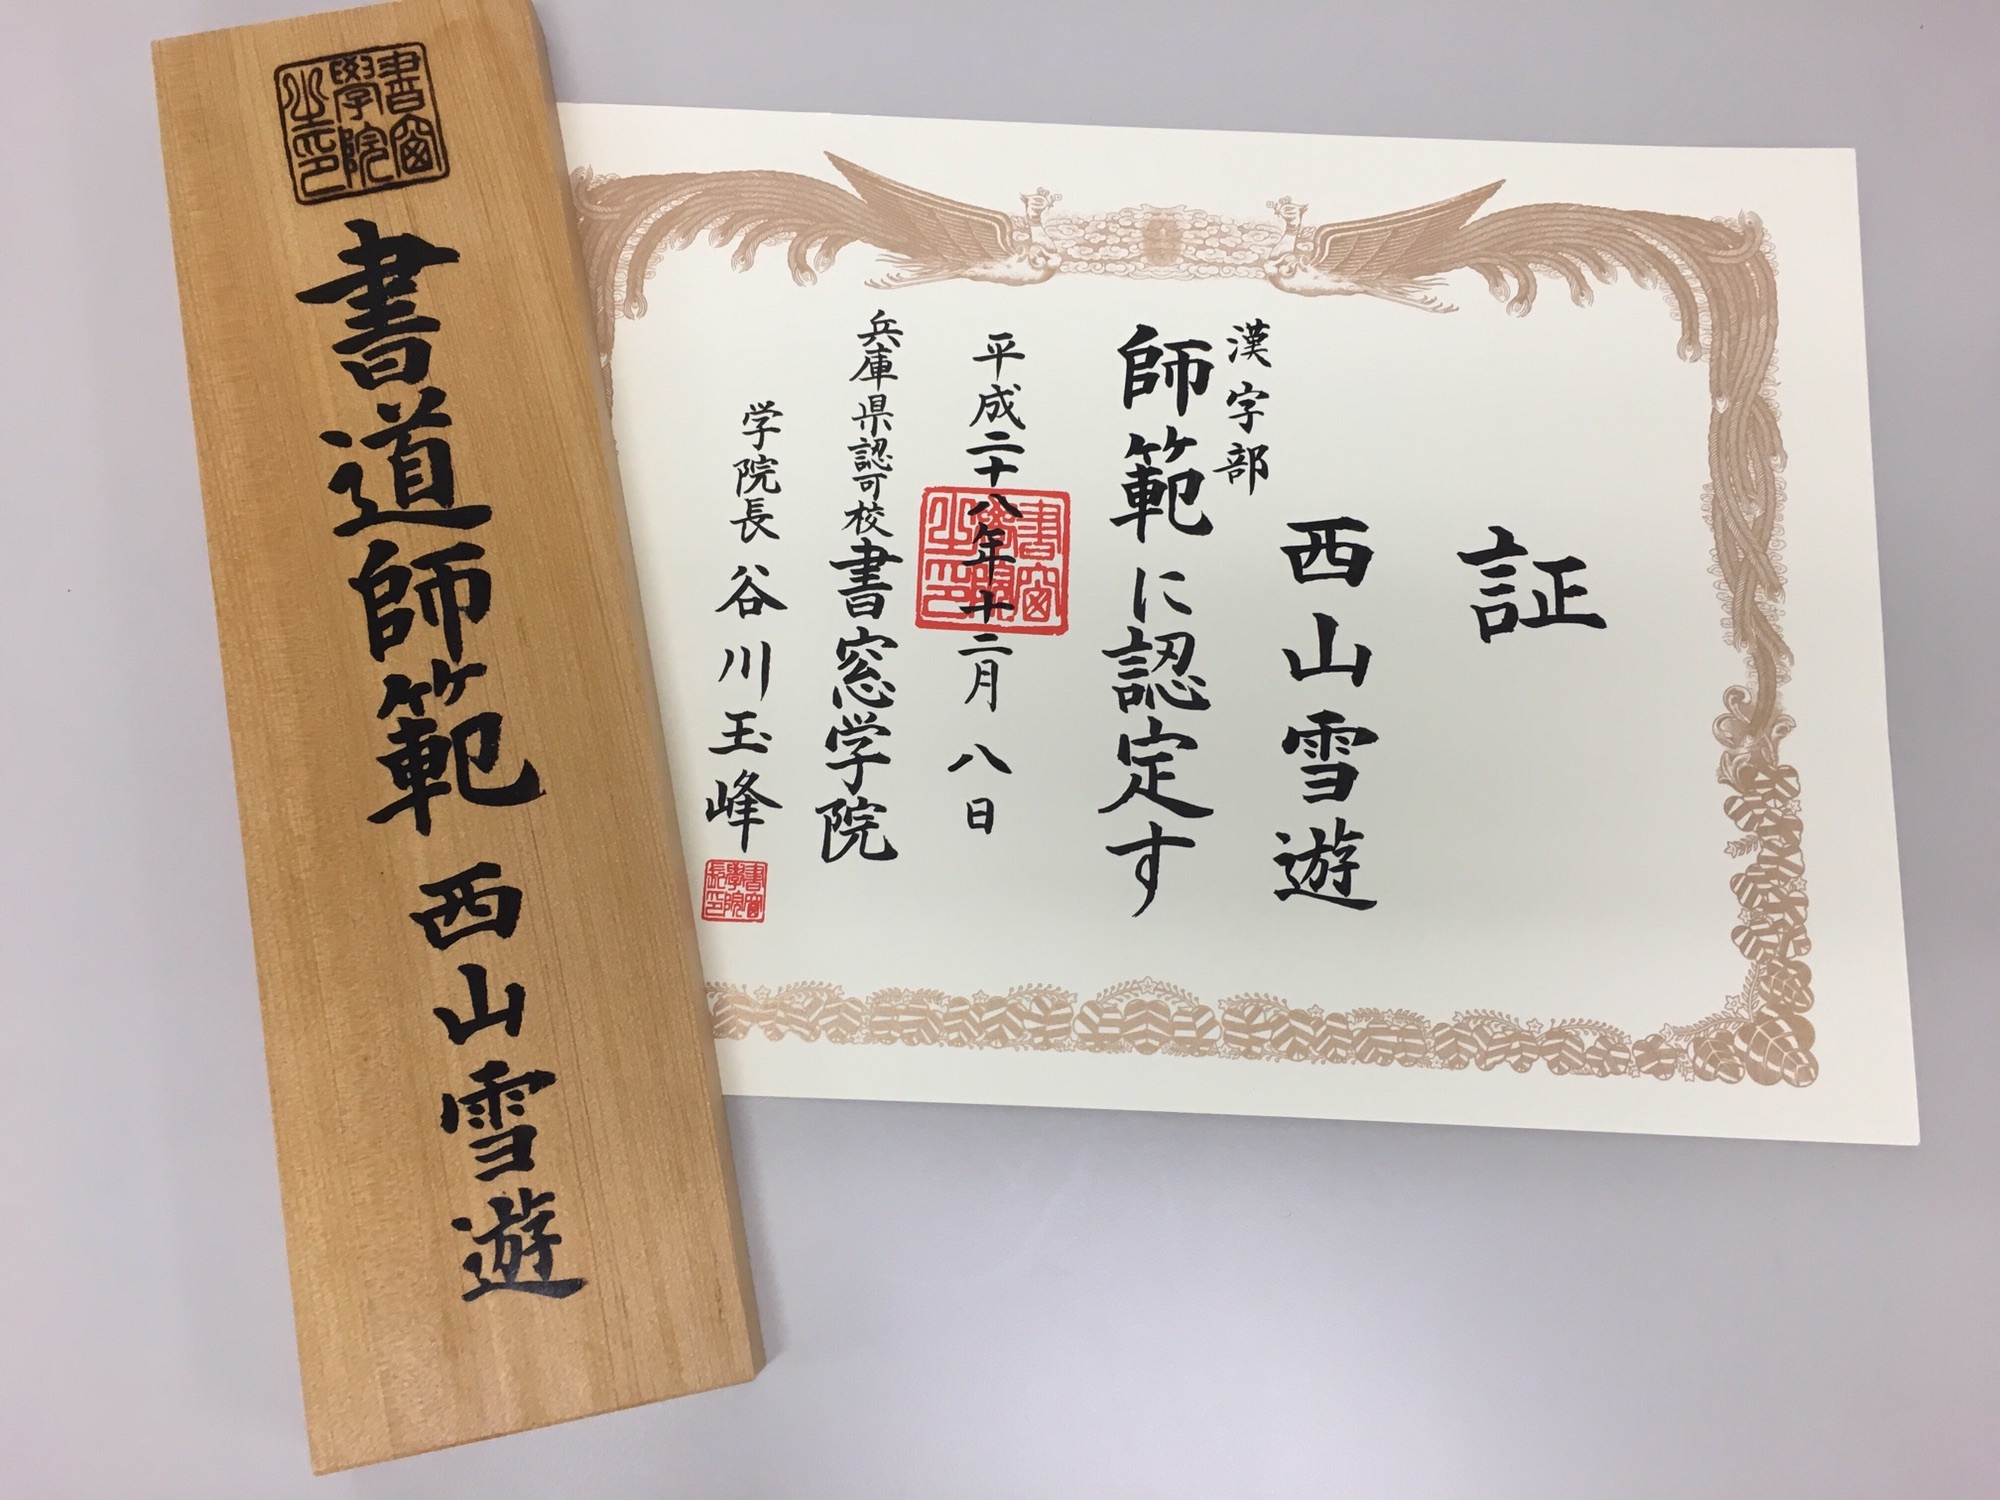 書窗
學院
之印
書道師範
西山雪遊
証
西山雪遊
漢字部
師範に認定す
平成二十八年十二月八日
書窗
學院
之印
兵庫県認可校書窓学院
学院長谷川玉峰
書窗
學院
長印